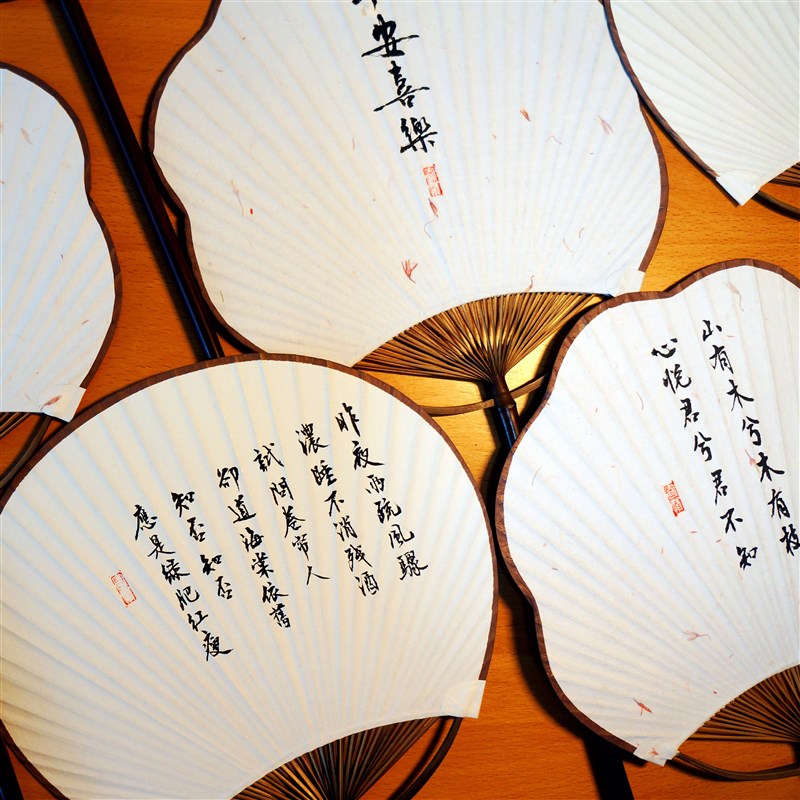 平安喜樂
昨夜雨疏風驟
濃睡不消残酒
試問卷帘人
卻道海棠依舊
知否知否
應是綠肥紅瘦
山有木兮木有枝
心悦君兮君不知